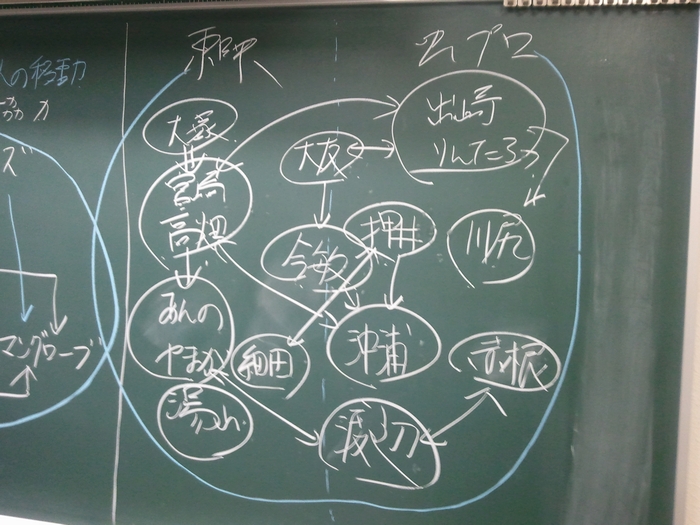 人の移動
協力
ズ
マングローブ
東映
虫プロ
大塚
宮崎
高畑
あんの
やまが
湯山
大友
今敏
押井
細田
沖浦
出崎
りんたろう
川尻
赤根